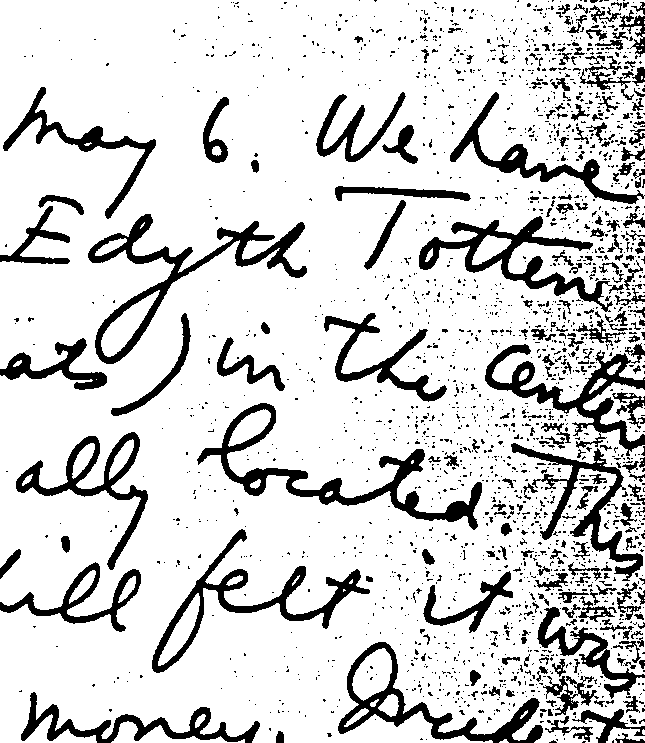 May 6. We have
Edyth Totten
ats) in the center
ally located. This
ill felt it was
money. Incident